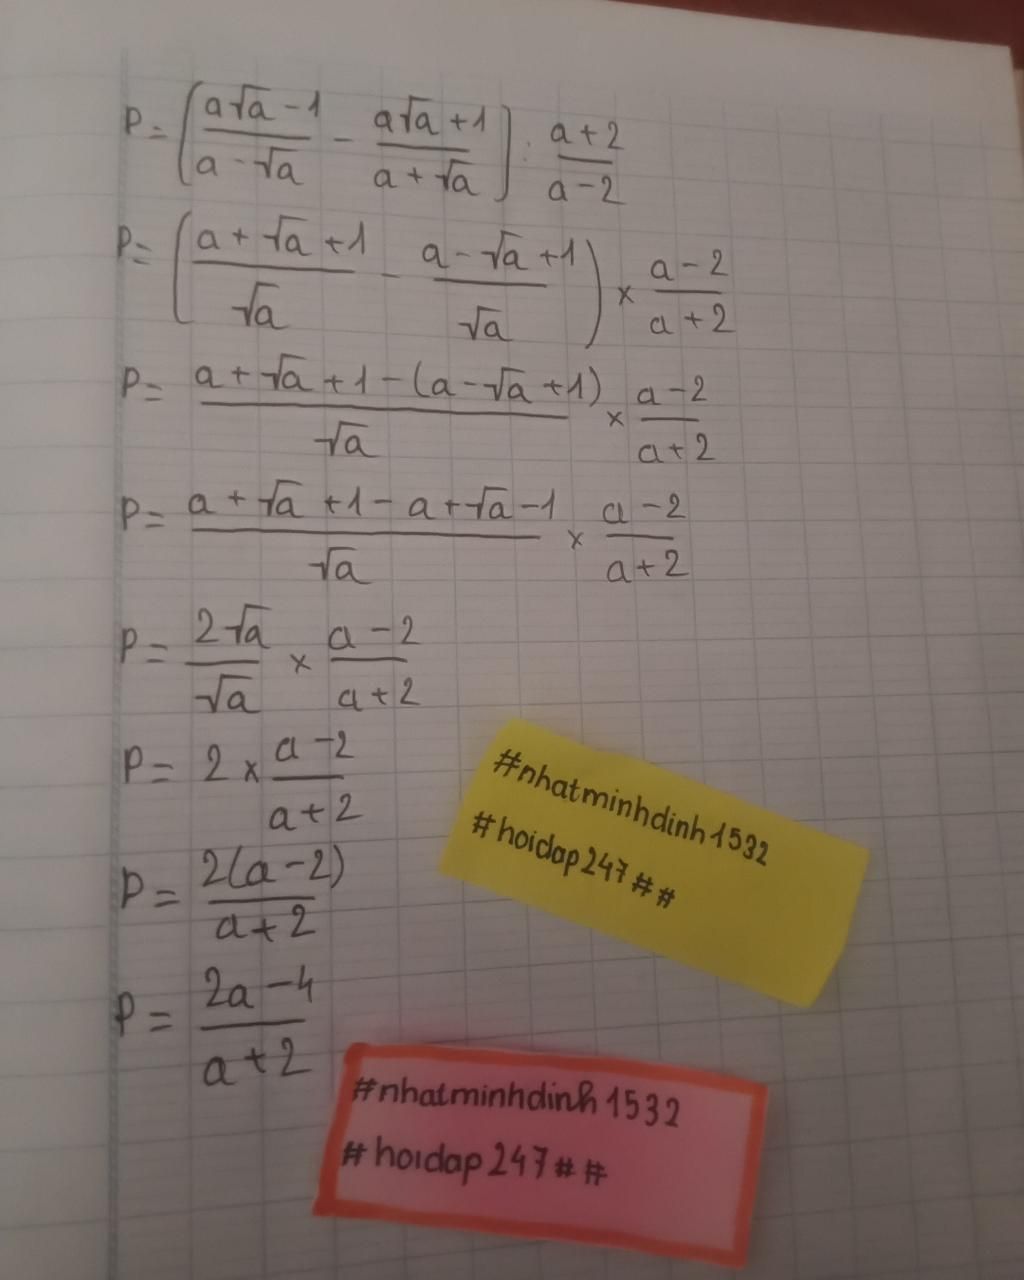 P = ( (a√a - 1)/(a - √a) - (a√a + 1)/(a + √a) ) : (a + 2)/(a - 2)
P = ( (a + √a + 1)/√a - (a - √a + 1)/√a ) × (a - 2)/(a + 2)
P = (a + √a + 1 - (a - √a + 1))/√a × (a - 2)/(a + 2)
P = (a + √a + 1 - a + √a - 1)/√a × (a - 2)/(a + 2)
P = 2√a/√a × (a - 2)/(a + 2)
P = 2 × (a - 2)/(a + 2)
P = 2(a - 2)/(a + 2)
P = (2a - 4)/(a + 2)
#nhatminhdinh1532
#hoidap247##
#nhatminhdinh1532
#hoidap247##